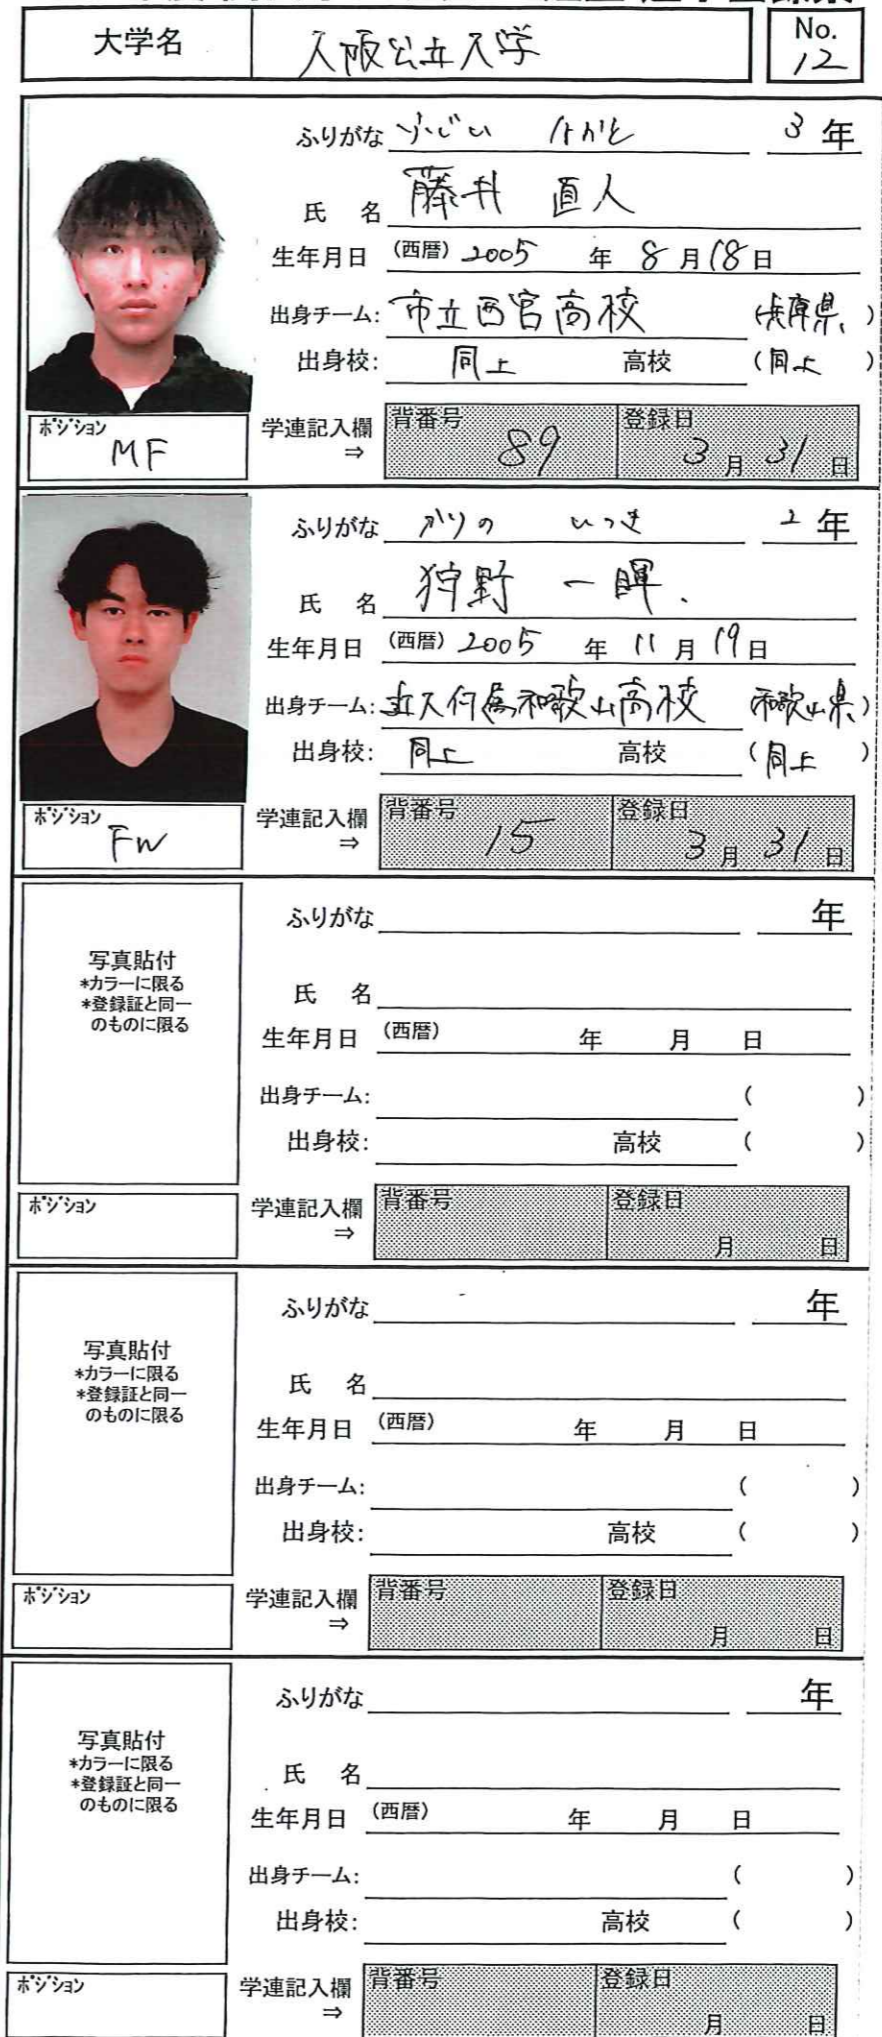 大学名 大阪公立大学 No. 12
ふりがな ふじい なおと 3年
氏 名 藤井 直人
生年月日 (西暦) 2005 年 8 月 18 日
出身チーム: 市立西宮高校 (兵庫県)
出身校: 同上 高校 (同上)
ポジション MF 学連記入欄 ⇒ 背番号 89 登録日 3 月 31 日
ふりがな かりの いつき 2年
氏 名 狩野 一暉
生年月日 (西暦) 2005 年 11 月 19 日
出身チーム: 近大付属和歌山高校 (和歌山県)
出身校: 同上 高校 (同上)
ポジション FW 学連記入欄 ⇒ 背番号 15 登録日 3 月 31 日
写真貼付
*カラーに限る
*登録証と同一
のものに限る
ふりがな 年
氏 名
生年月日 (西暦) 年 月 日
出身チーム: ( )
出身校: 高校 ( )
ポジション 学連記入欄 ⇒ 背番号 登録日 月 日
写真貼付
*カラーに限る
*登録証と同一
のものに限る
ふりがな 年
氏 名
生年月日 (西暦) 年 月 日
出身チーム: ( )
出身校: 高校 ( )
ポジション 学連記入欄 ⇒ 背番号 登録日 月 日
写真貼付
*カラーに限る
*登録証と同一
のものに限る
ふりがな 年
氏 名
生年月日 (西暦) 年 月 日
出身チーム: ( )
出身校: 高校 ( )
ポジション 学連記入欄 ⇒ 背番号 登録日 月 日